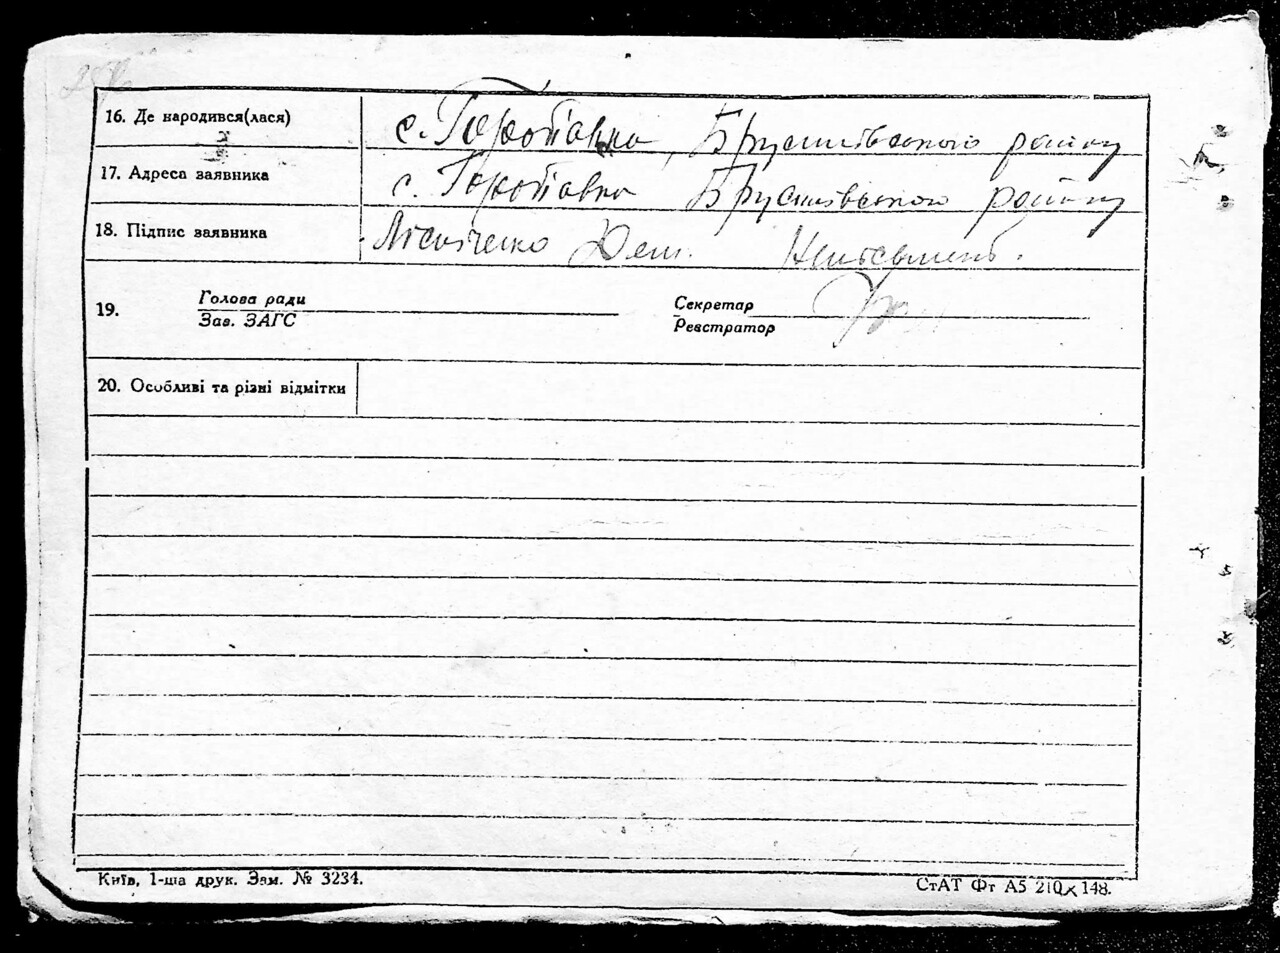 16. Де народився(лася) с. Хоботівка, Брусилівського району
17. Адреса заявника с. Брусилівського району
18. Підпис заявника
19. Голова ради Секретар
Зав. ЗАГС Реєстратор
20. Особливі та різні відмітки
Київ, 1-ша друк. Зам. № 3234.
СтАТ Фт А5 210×148.